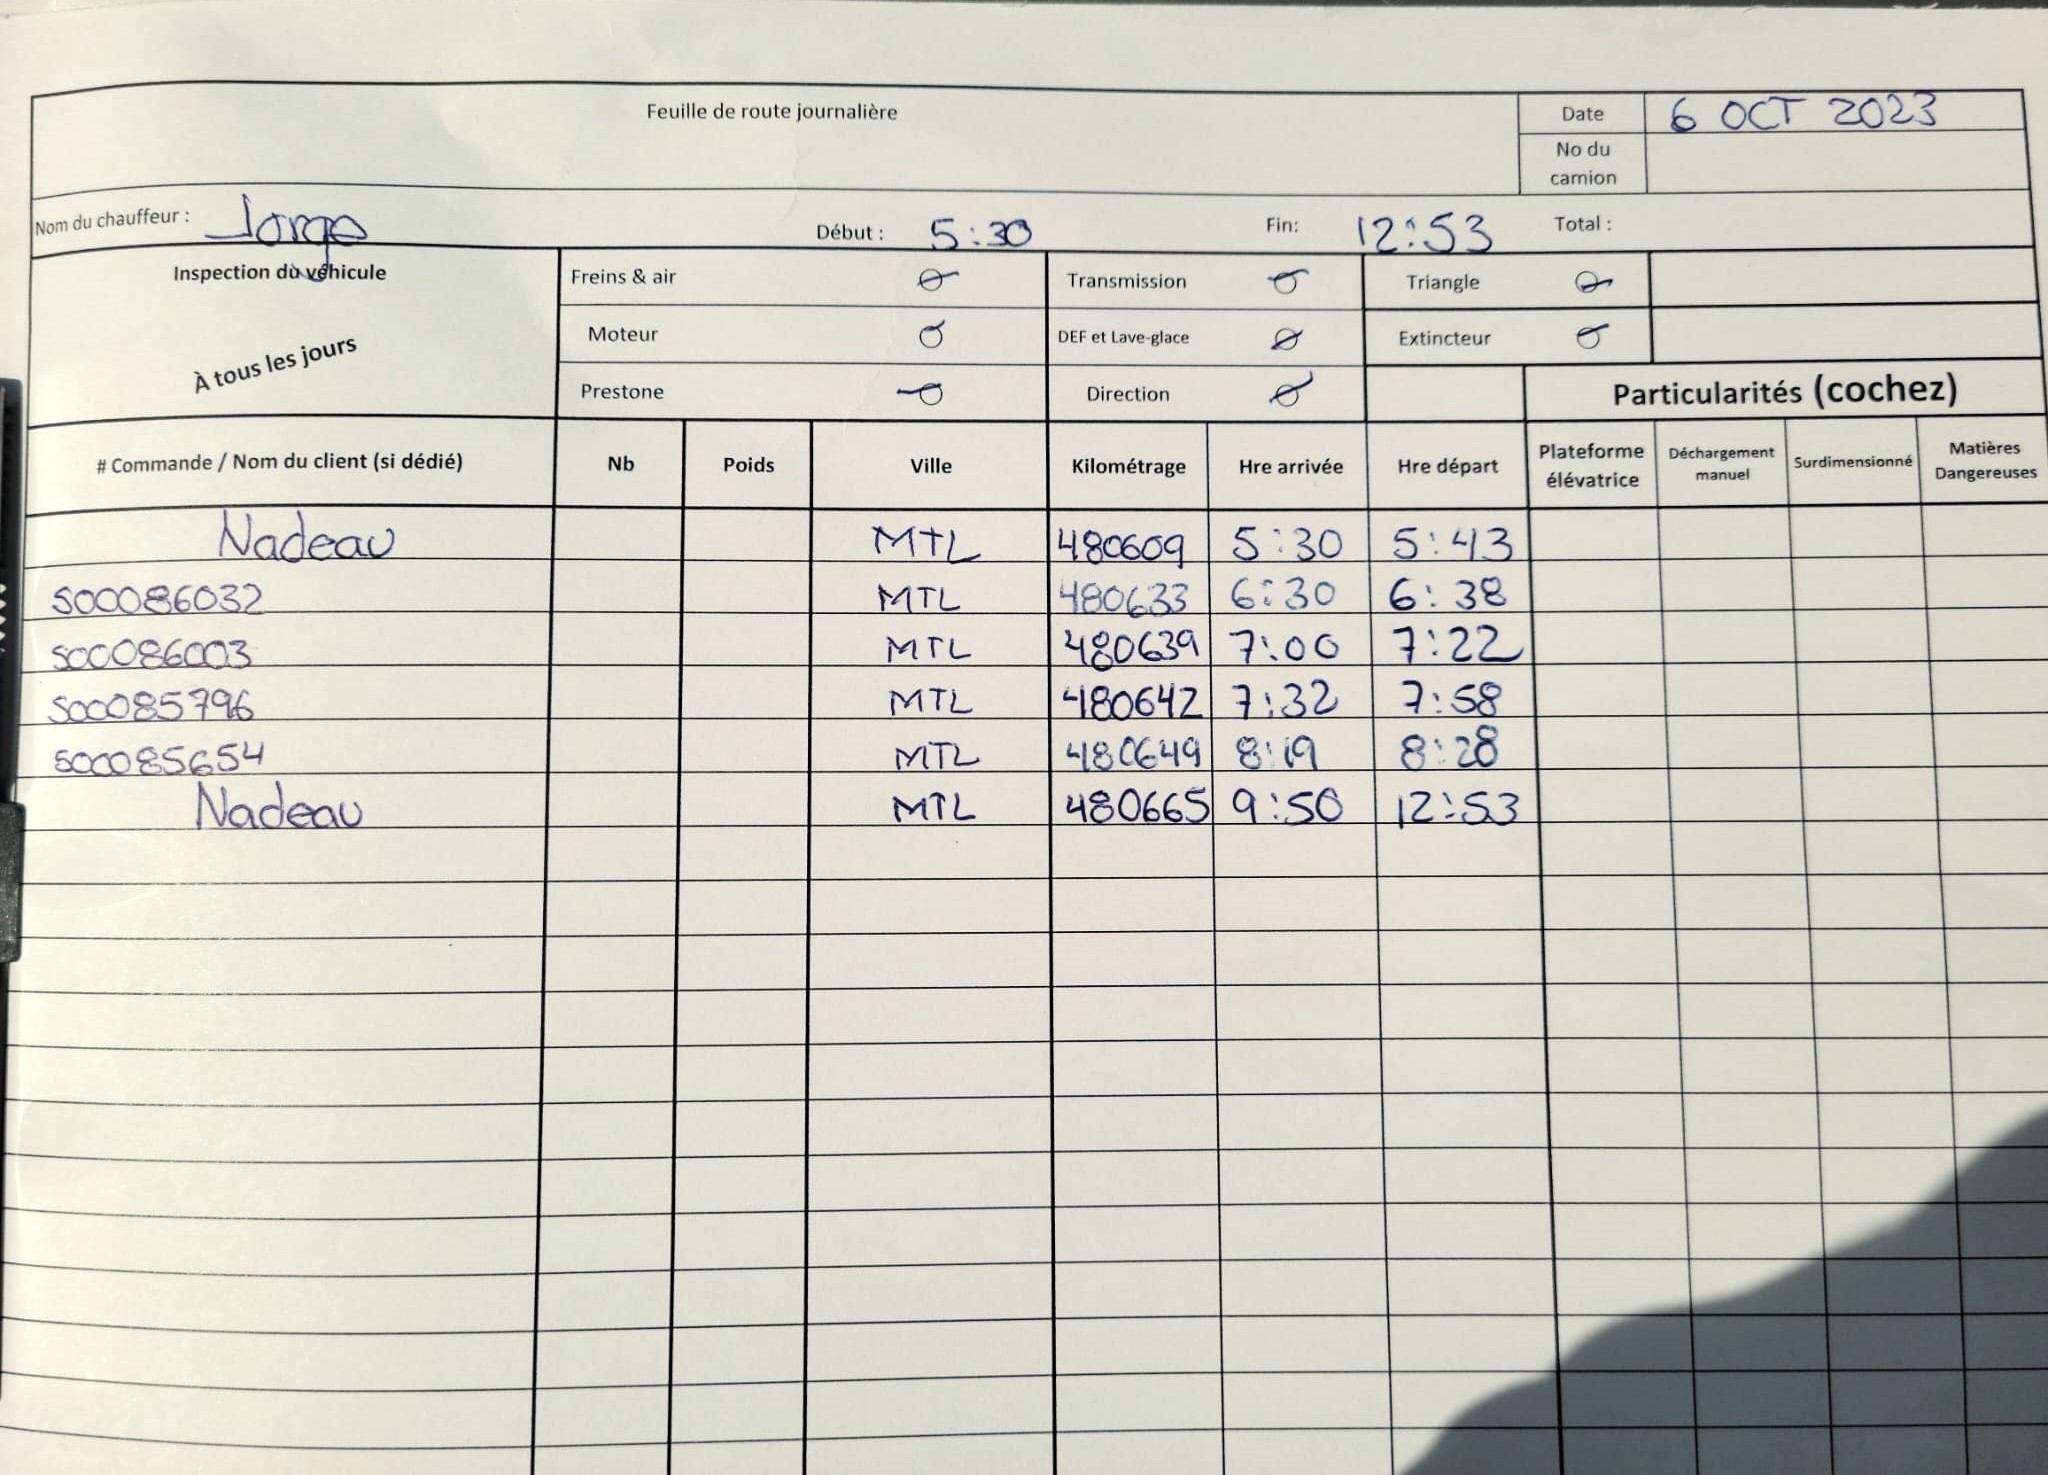 Feuille de route journalière
Date 6 OCT 2023
No du
camion
Nom du chauffeur : Jorge Début : 5:30 Fin: 12:53 Total :
Inspection du véhicule
À tous les jours
Freins & air Transmission Triangle
Moteur DEF et Lave-glace Extincteur
Prestone Direction
Particularités (cochez)
# Commande / Nom du client (si dédié) Nb Poids Ville Kilométrage Hre arrivée Hre départ Plateforme élévatrice Déchargement manuel Surdimensionné Matières Dangereuses
Nadeau MTL 480609 5:30 5:43
SO0086032 MTL 480633 6:30 6:38
SO0086003 MTL 480639 7:00 7:22
SO0085796 MTL 480642 7:32 7:58
SO0085654 MTL 480649 8:19 8:28
Nadeau MTL 480665 9:50 12:53